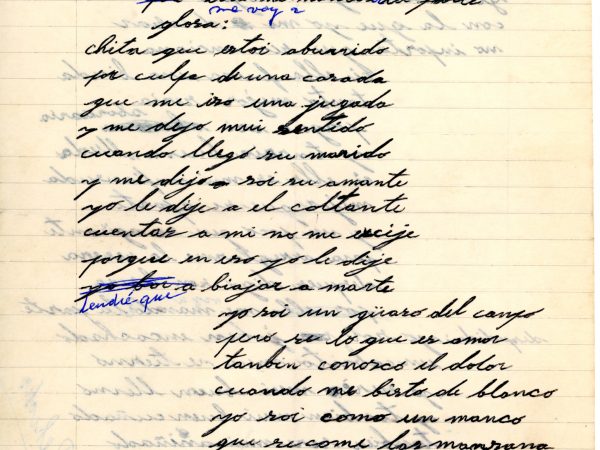 me voy a
glosa:
chita que estoi aburrido
por culpa de una casada
que me iso una jugada
y me dejo mui sentido
cuando llego su marido
y me dijo soi su amante
yo le dije a el coltante
cuentas a mi no me exije
porque en eso yo le dije
yo boi a biajar a marte
tendré que
yo soi un güaso del campo
pero se lo que es amor
tanbin conosco el dolor
cuando me bisto de blanco
yo soi como un manco
que se come las manzana